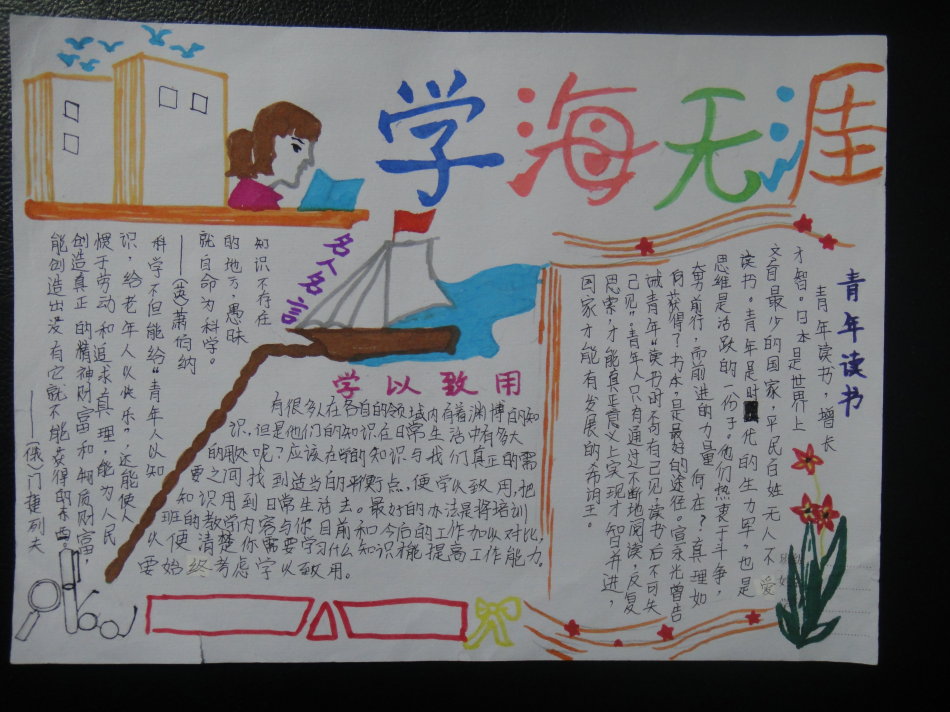 学海无涯
名人名言
知识不存在
的地方,愚昧
就自命为科学。
——(英)萧伯纳
科学不但能给“青年人以知
识,给老年人以快乐”,还能使人
惯于劳动和追求真理,能为人民
创造真正的精神财富和物质财富,
能创造出没有它就不能获得的东西。
——(俄)门捷列夫
学以致用
有很多人在各自的领域内有着渊博的知
识,但是他们的知识在日常生活中有多大
的用处呢?应该在学的知识与我们真正的需
要之间找到适当的平衡点,便学以致用,把
知识用到日常生活去。最好的办法是将培训
班的教学内容与你目前和今后的工作加以对比,
以便清楚你需要学习什么知识才能提高工作能力。
要始终考虑学以致用。
青年读书
青年读书 增长
才智。日本是世界上
文盲最少的国家,平民百姓无人不爱
读书。青年是时代的生力军,也是
思维最活跃的一份子。他们热衷于斗争,
奋勇前行,而前进的力量何在?真理如
何获得?书本是最好的途径。宣永光曾告
诫青年“读书时不可有己见,读书后不可失
己见”。青年人只有通过不断地阅读,反复
思索,才能真正意义上实现才知日并进,
国家才能有发展的希望。